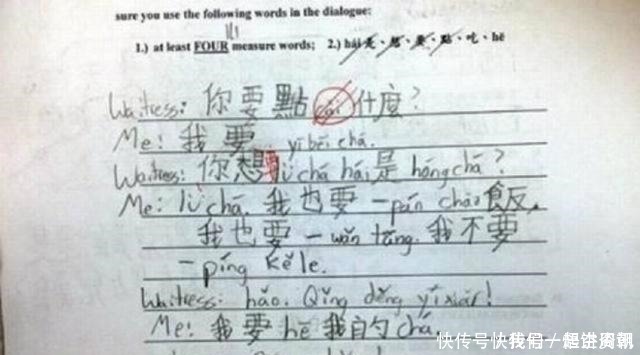 sure you use the following words in the dialogue:
1.) at least FOUR measure words; 2.) hái 是、想、要、點、吃、hē
Waitress: 你要點 cài 什麼?
Me: 我要 yī bēi chá.
Waitress: 你想要 lǜ chá hái 是 hóng chá?
Me: lǜ chá. 我也要一 pán chǎo 飯,
我也要一 wǎn tāng. 我不要
一 píng kě lè.
Waitress: hǎo. Qǐng děng yíxiàr!
Me: 我要 hē 我的 chá.